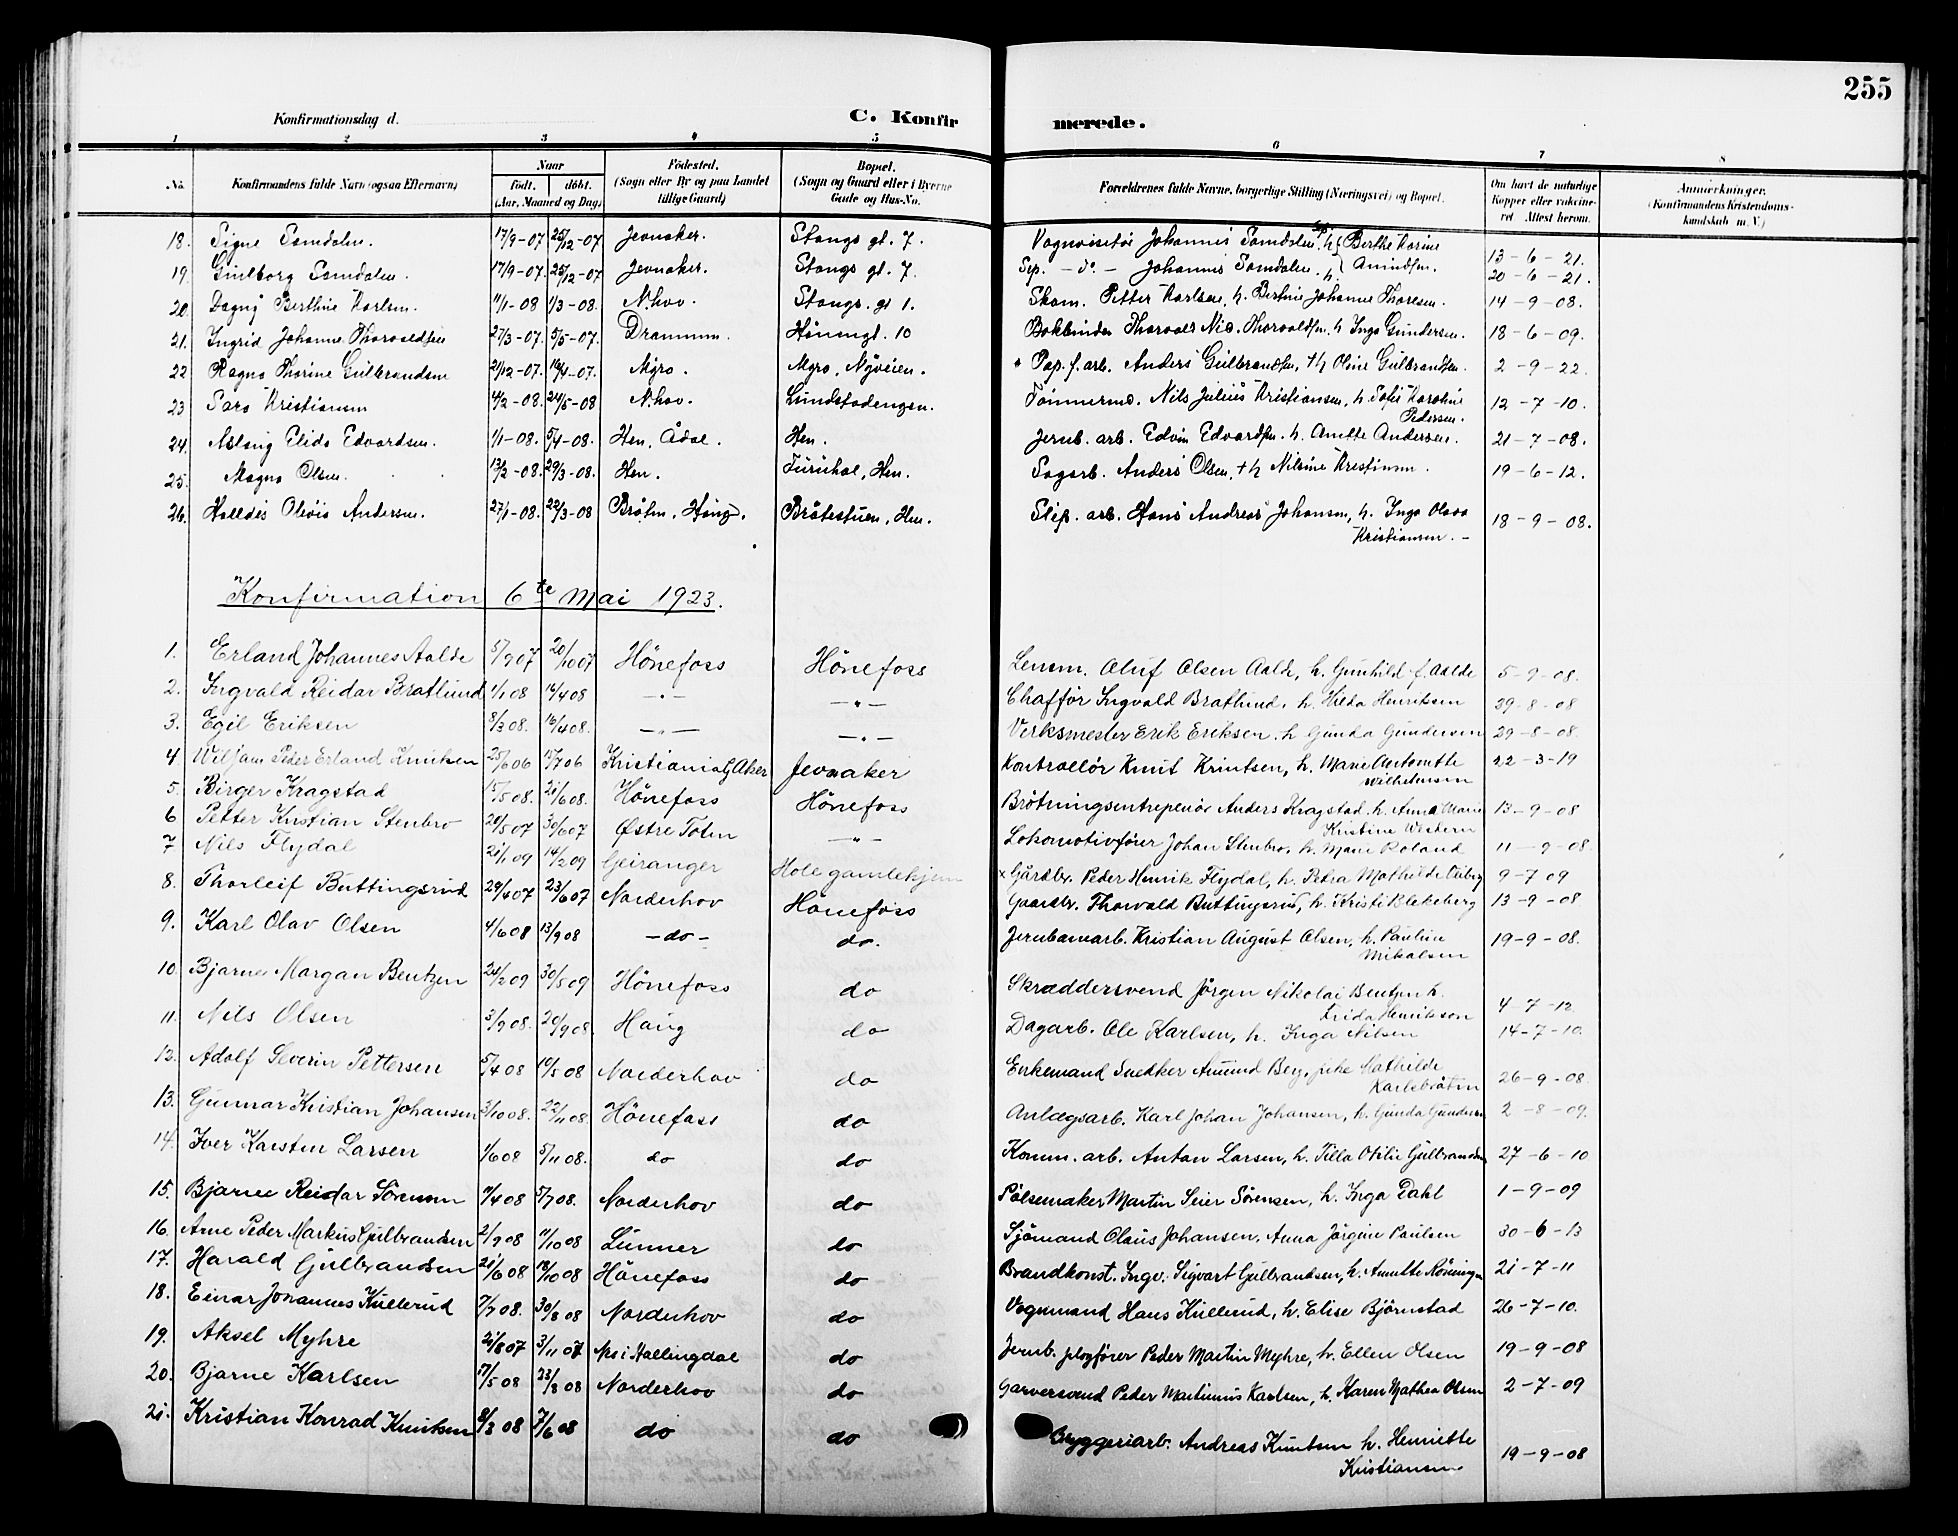 255
Konfirmationsdag d. C. Konfirmerede.
1 2 3 4 5 6 7 8
No. Konfirmandens fulde Navn (ogsaa Efternavn) Naar født. døbt. (Aar, Maaned og Dag) Fødested. (Sogn eller By og paa Landet tillige Gaard) Bopæl. (Sogn og Gaard eller i Byerne Gade og Hus-No. Forældrenes fulde Navne, borgerlige Stilling (Næringsvei) og Bopæl. Om havt de naturlige Kopper eller vaccineret. Attest herom. Anmærkninger. (Konfirmandens Kristendomskundskab m. V.)
18. Signe Samdalen. 17/9-07 25/12-07 Jevnaker. Stangs gt. 7. Johannes Samdalen h. Berthe Karine 13-6-21.
19. Gulborg Samdalen. 17/9-07. 25/12-07 Jevnaker. Stangs gt. 7. Sep. - do - Johannes Samdalen. h. Amundsen. 20-6-21.
20. Dagny Berthine Karlsen. 11/1-08 1/3-08. N.hov. Stangs. gt 1. Skom. Petter Karlsen, h. Bertine Johanne Thoresen. 14-9-08.
21. Ingrid Johanne Thorvaldsen 27/3-07. 5/5-07. Drammen. Hönengt. 10 Bokbinder Thorvald Nic. Thorvaldsen. h Inga Gundersen. 18-6-09.
22 Ragna Thorine Gulbrandsen 21/12-07. 19/4-07. Myra. Myra, Nyveien. Pap. f. arb. Anders Gulbrandsen, + h Oline Gulbrandsen. 2-9-22.
23 Sara Kristiansen 4/2-08. 24/5-08 N.hov. Lundstadengen. Tømmerm. Nils Julius Kristiansen, h. Sofie Karoline Pedersen. 12-7-10.
24. Aslaug Elida Edvardsen. 1/1-08. 5/4-08. Hen, Ådal. Hen. Jernb. arb. Edvin Edvardsen. h. Anette Andersen. 21-7-08.
25. Magna Olsen. 13/2-08. 29/3-08. Hen. Furuhol, Hen. Sagarb. Anders Olsen, + h Nilsine Kristiansen. 19-6-12.
26. Halldis Olovia Andersen. 27/1-08. 22/3-08 Bråten, Haug. Bråtestuen, Hen. Slip. arb. Hans Andreas Johansen, h. Inga Olava Kristiansen. - 18-9-08.
Konfirmation 6te Mai 1923.
1. Erland Johannes Aalde 5/9 07 20/10 07 Hönefoss Hönefoss Lensm. Oluf Olsen Aalde, h. Gunhild f. Aalde 5-9-08.
2. Ingvald Reidar Bratlund 1/1 08 19/4 08 -"- -"- Chaffør Ingvald Bratlund, h. Hilda Henriksen 29-8-08
3. Egil Eriksen 8/3 08. 16/4 08. -"- -"- Verksmester Erik Eriksen. h Gunda Gundersen 29-8-08.
4 Wiljam Peder Erland Knutsen 25/6 06 15/7 06 Kristiania V. Aker Jevnaker Kontrollør Knut Knutsen, h. Marie Antonette Wilhelmsen 22-3-19
5. Birger Kragstad 15/5 08. 21/6 08. Hönefoss Hönefoss Brøtningsentreprenør Anders Kragstad. h. Anna Marie Kristine Western 13-9-08
6 Petter Kristian Stenbro 20/5 07 30/6 07 Østre Toten -"- Lokomotivfører Johan Stenbro, h. Marie Roland 11-9-08.
7 Nils Flydal 21/1 09 14/2 09 Geiranger Hole gamlehjem × Gårdbr. Peder Henrik Flydal, h. Petra Mathilde 9-7 09
8. Thorleif Buttingsrud 24/4 07 23/6 07 Norderhov Hönefoss Gaardbr. Thorvald Buttingsrud, h. Kristi Blekeberg 13-9-08
9. Karl Olav Olsen 4/6 08 13/9 08 -do- do. Jernbanearb. Kristian August Olsen, h. Pauline Mikalsen 19-9-08.
10. Bjarne Morgan Bentzen 24/2 09 30/5 09 Hönefoss do Skræddersvend Jørgen Nikolai Bentzen h. Frida Henrikson 4-7-12
11. Nils Olsen 3/9 08. 20/9 08. Haug do Dagarb. Ole Karlsen, h. Inga Nilsen 14-7-10.
12. Adolf Severin Pettersen 5/4 08 10/5 08 Norderhov do Enkemand Snedker Amund Berg, pike Mathilde Karlsbråten 26-9-08.
13. Gunnar Kristian Johansen 3/10 08. 22/11 08. Hönefoss do Anlægsarb. Karl Johan Johansen, h. Gunda Gundersen 2-8-09.
14. Iver Karsten Larsen 1/6 08 5/11 08. do do Komm. arb. Anton Larsen, h. Tilla Otilie Gulbrandsen 27-6-10
15. Bjarne Reidar Sörensen 11/4 08 5/7 08. Norderhov do Pølsemaker Martin Seier Sörensen, h. Inga Dahl 1-9-09
16. Arne Peder Markus Gulbrandsen 2/9 08 11/10 08 Lunner do Sjömand Olaus Johansen, Anna Jörgine Paulsen 30-6-13
17. Harald Gulbrandsen 21/6 08 18/10 08 Hönefoss do Brandkonst. Ingv. Sigvart Gulbrandsen, h. Anette Röningen 21-7-11
18. Einar Johannes Kullerud 7/7 08. 30/8 08 Norderhov do Vognmand Hans Kullerud, h. Elise Björnstad 26-7-10.
19. Aksel Myhre 21/8 07 3/11 07 Nes i Hallingdal do Jernb. plogfører Peder Martin Myhre, h. Ellen Olsen 19-9-08
20. Bjarne Karlsen 17/5 08 23/8 08 Norderhov do Garversvend Peder Martinius Karlsen, h. Karen Mathea Olsen 2-7-09
21. Kristian Konrad Knutsen 8/3 08 7/6 08 do do Bryggeriarb. Andreas Knutsen h. Henriette Kristiansen 19-9-08